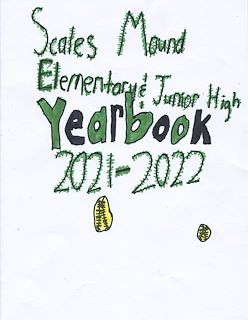 Scales Mound
Elementary & Junior High
Yearbook
2021-2022